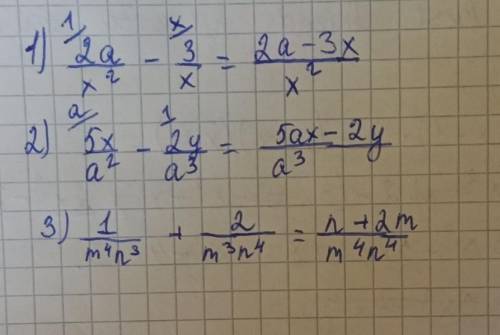 1) 1/ 2a/x² - x/ 3/x = (2a - 3x)/x²
2) a/ 5x/a² - 1/ 2y/a³ = (5ax - 2y)/a³
3) 1/(m⁴n³) + 2/(m³n⁴) = (n + 2m)/(m⁴n⁴)